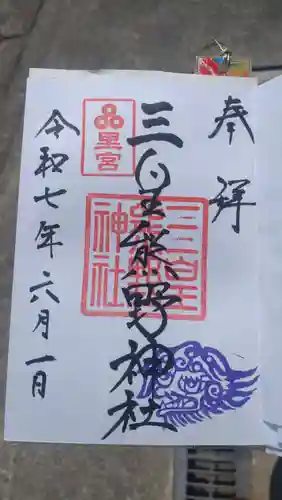 奉拝
三皇熊野神社
里宮
三皇熊野神社
令和七年六月一日